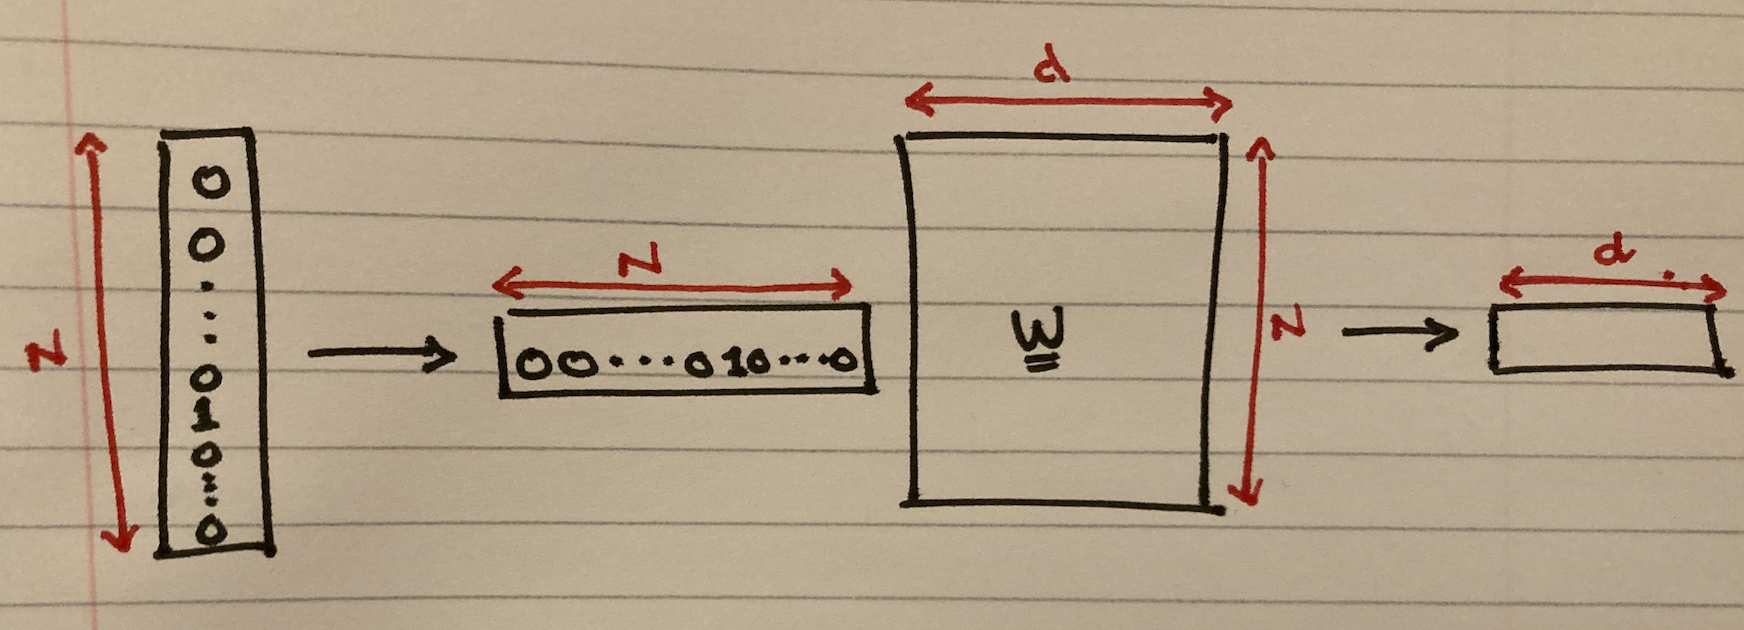 N
0
0
.
.
.
0
1
0
...
0
N
00....010....0
d
W
N
d